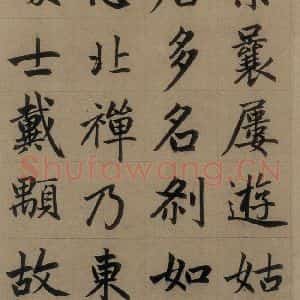 曩屢遊姑
多名刹如
北禪乃東
士戴顒故
Shufawang.CN